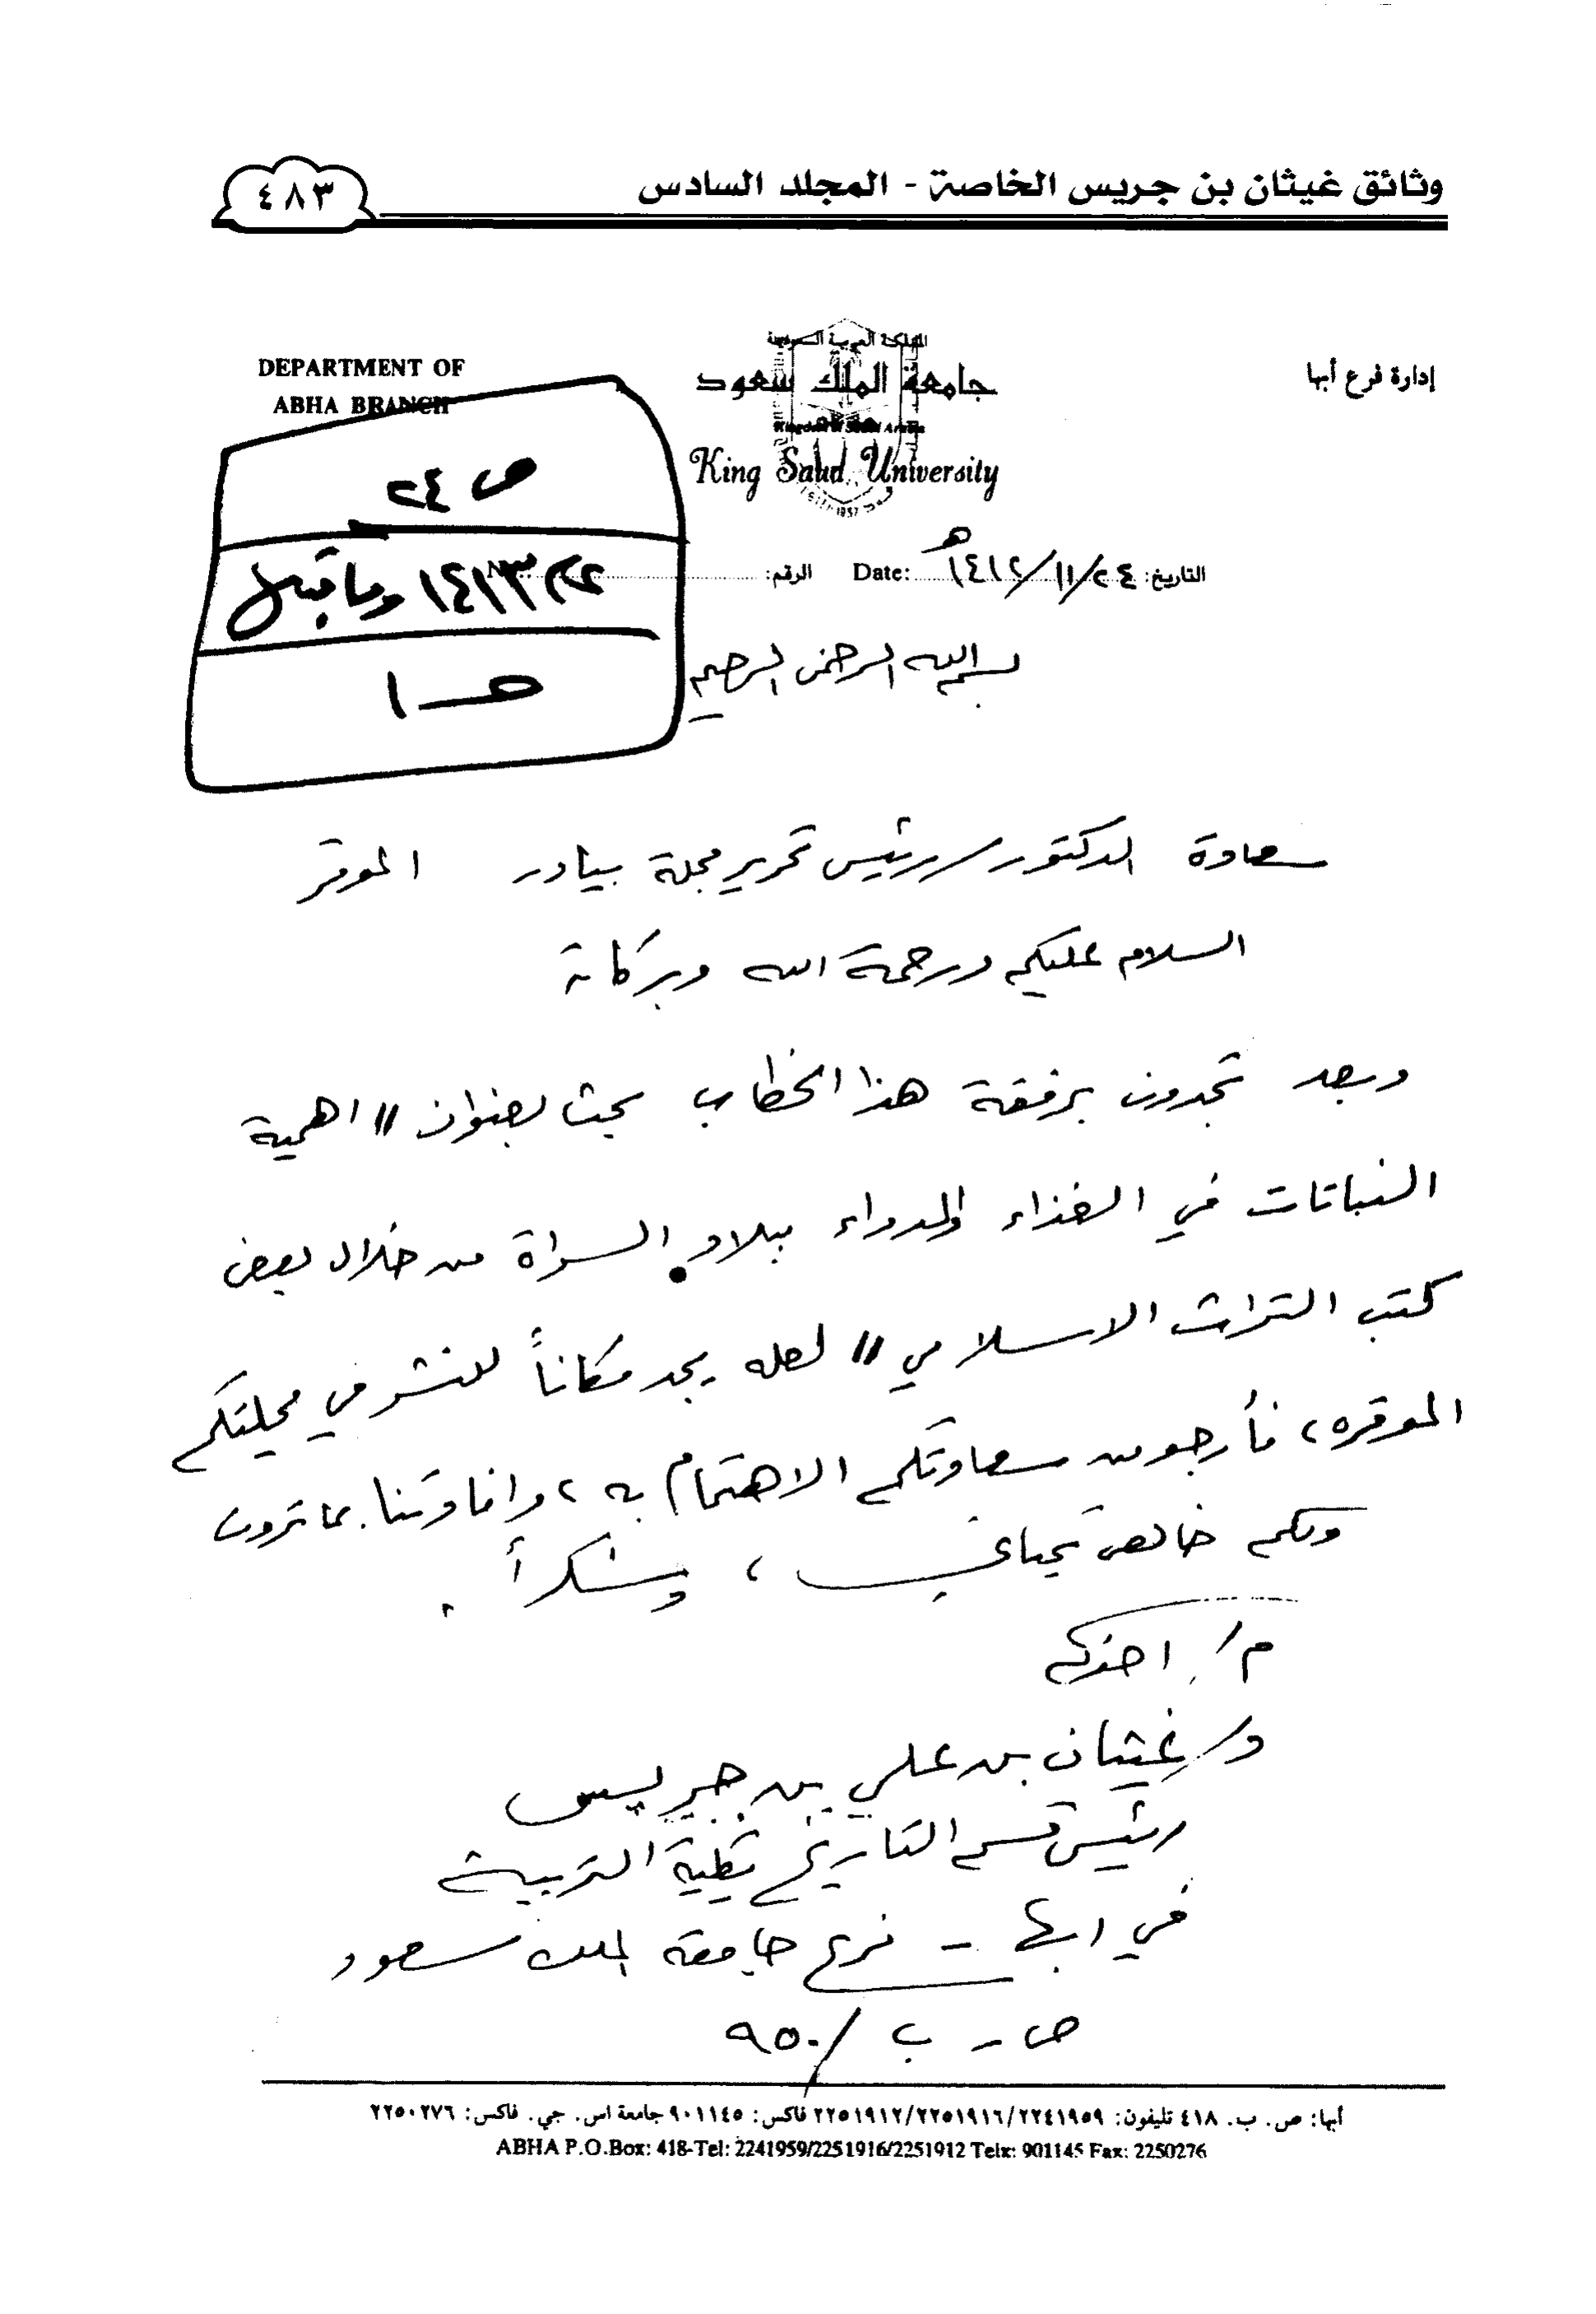 وثائق غيثان بن جريس الخاصة - المجلد السادس
٤٨٣
إدارة فرع أبها
المملكة العربية السعودية
جامعة الملك سعود
King Saud University
1957
DEPARTMENT OF
ABHA BRANCH
ص ٢٤
١٤١٣ وما قبل
ص ١
التاريخ: ١٤١٢/١١/٢٤هـ Date: الرقم:
بسم الله الرحمن الرحيم
سعادة الدكتور / رئيس تحرير مجلة بيادر الموقر
السلام عليكم ورحمة الله وبركاتة
وبعد تجدون برفقة هذا الخطاب بحث بعنوان // اهمية
النباتات في الغذاء والدواء ببلاد السراة من خلال بعض
كتب التراث الاسلامي // لعله يجد مكاناً للنشر في مجلتكم
الموقره ، فأرجو من سعادتكم الاهتمام به ، وافادتنا بما ترون
ولكم خالص تحياتي ، وشكراً .
م/ اخوكم
د/ غيثان بن علي بن جريس
رئيس قسم التاريخ بكلية التربية
في ابها - فرع جامعة الملك سعود
ص - ب / ٩٥٠
أبها: ص. ب. ٤١٨ تليفون: ٢٢٥١٩١٢/٢٢٥١٩١٦/٢٢٤١٩٥٩ فاكس: ٩٠١١٤٥ جامعة اس. جي. فاكس: ٢٢٥٠٢٧٦
ABHA P.O.Box: 418-Tel: 2241959/2251916/2251912 Telx: 901145 Fax: 2250276